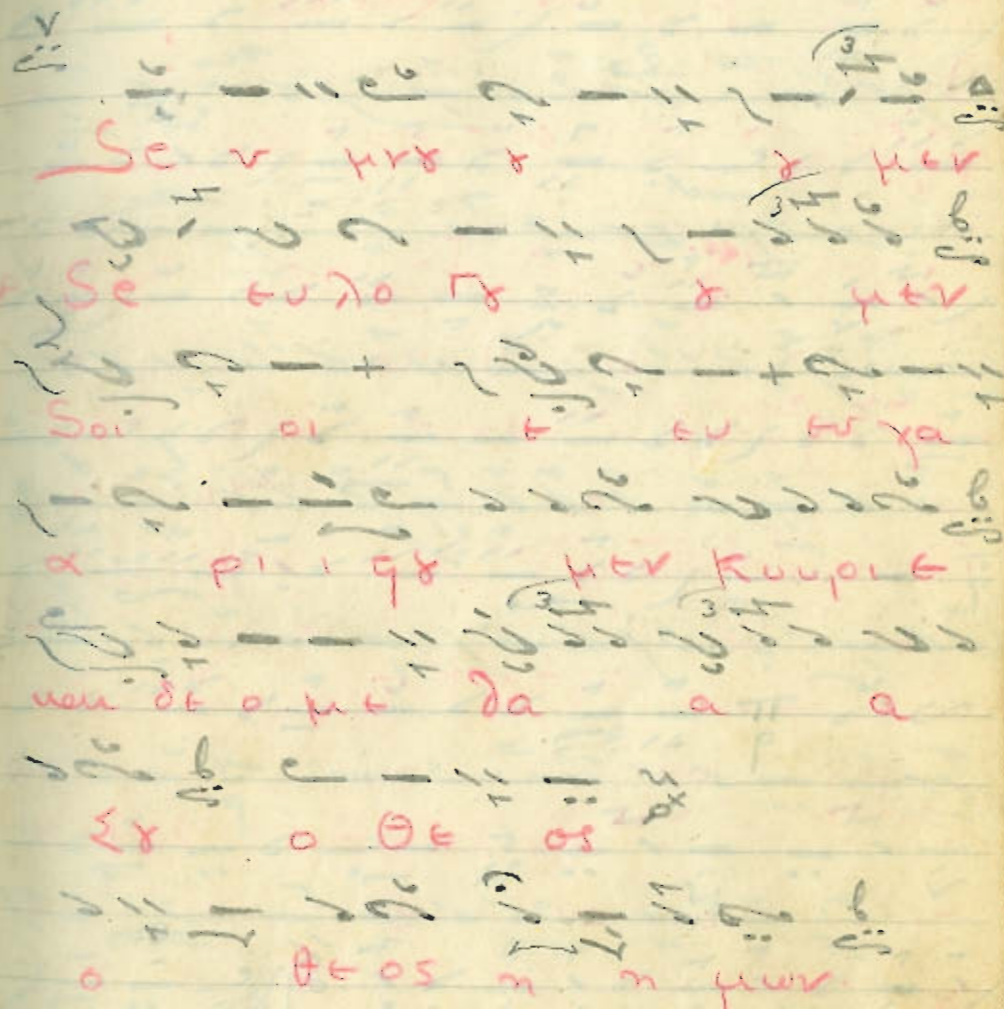 Σε υ μνȣ ȣ ȣ μεν
Σε ευλο γȣ ȣ μεν
Σοι οι ε ευ ευ χα
α ρι ι ςȣ μεν Κυυρι ε
και δε ο με θα α α
Σȣ ο Θε ος
ο θε ος η η μων.